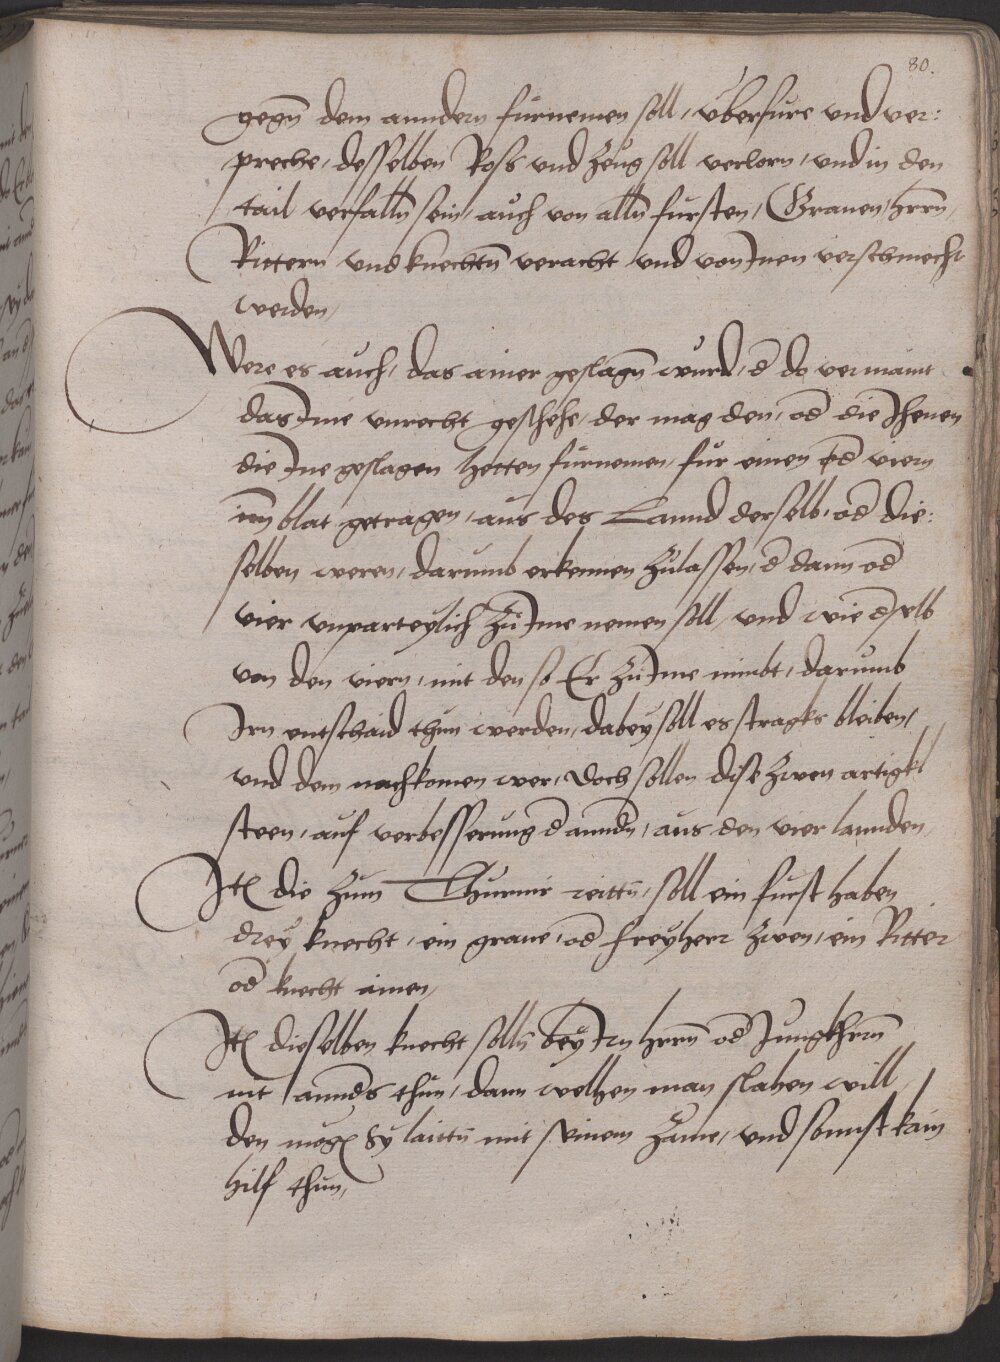 80.
gegn̄ dem anndern furnemen soll, uberfure vnd ver:
preche, desselben Ross vnd Zeug soll verlorn, vnd in den
tail verfalln̄ sein, auch von alln̄ fursten, Grauen, hrrn̄,
Rittern vnd knechtn̄ veracht vnd von Inen verschmecht
werden,
Were es auch, das ainer geslagn̄ wurd, d̄ do vermaint
das Ime vnrecht geschehe, der mag den, od̄ die Jhenen
die Ine geslagen hetten furnemen, fur einen od̄ viern
im̄ blat getragen, aus des Lannd derselb, od̄ die:
selben weren, darumb erkennen Zulassen, d̄ dann od̄
vier vnparteylich Zu Ime nemen soll, vnd wie d̄selb
von den viern, mit den so Er Zu Ime nimbt, darumb
Irn entschaid thun werden, dabey soll es stragks bleiben,
vnd dem nachkomen wer, Doch sollen dise Zwen artigkl
steen, auf verbesserung d̄ annd̄n, aus den vier lannden,
Itē die Zum Thurnir reittn̄, soll ein furst haben
drey knecht, ein graue, od̄ freyherr Zwen, ein Ritter
od̄ knecht ainen,
Itē dieselben knecht solln̄ bey Irn hrrn̄ od̄ Jungkhrrn̄
nit annd̄s thun, dann welhen man slahen will,
den mögē Sy laittn̄ mit seinem Zame, vnd sonnst kain
hilf thun,